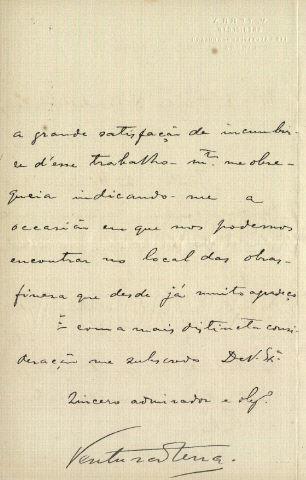 a grande satisfação de incumbir-
se d'esse trabalho - m.to me obse-
queia indicando-me a
occasião em que nos podemos
encontrar no local das obras -
fineza que desde já muito agradeço
E com a mais distincta consi-
deração me subscrevo De V. Sª.
Sincero admirador e obg.º
Ventura Terra.